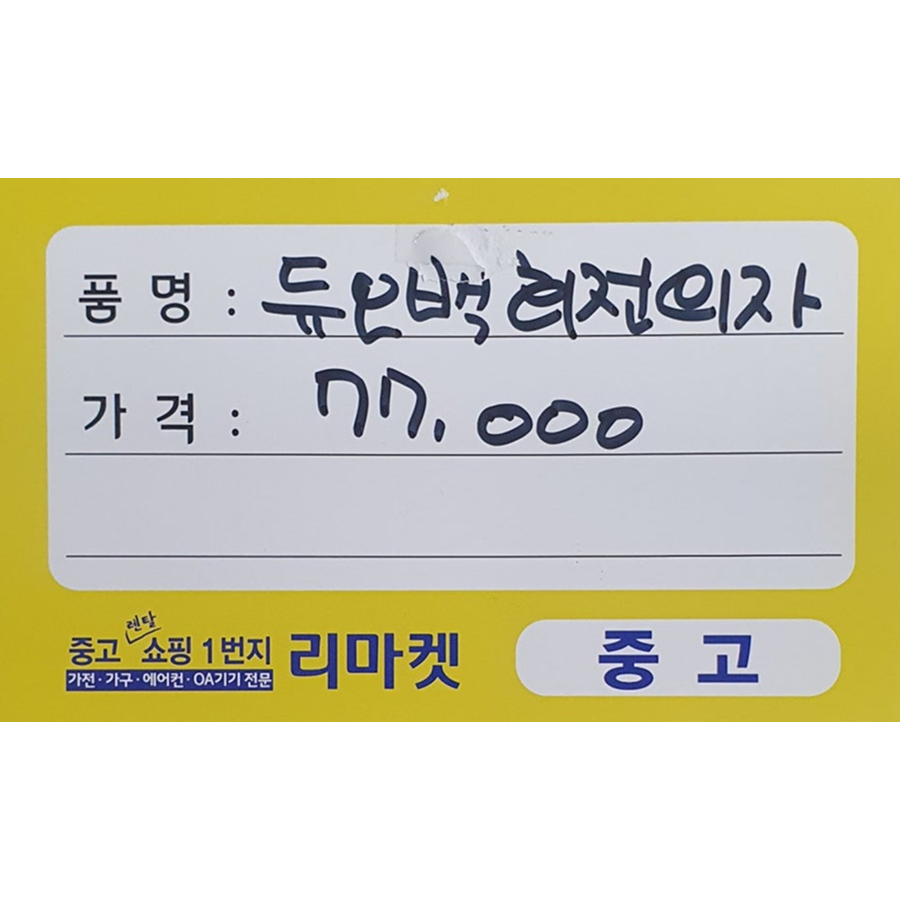 품명 : 듀오백 회전의자
가격 : 77,000
렌탈
중고 쇼핑 1번지
가전·가구·에어컨·OA기기 전문
리마켓
중고